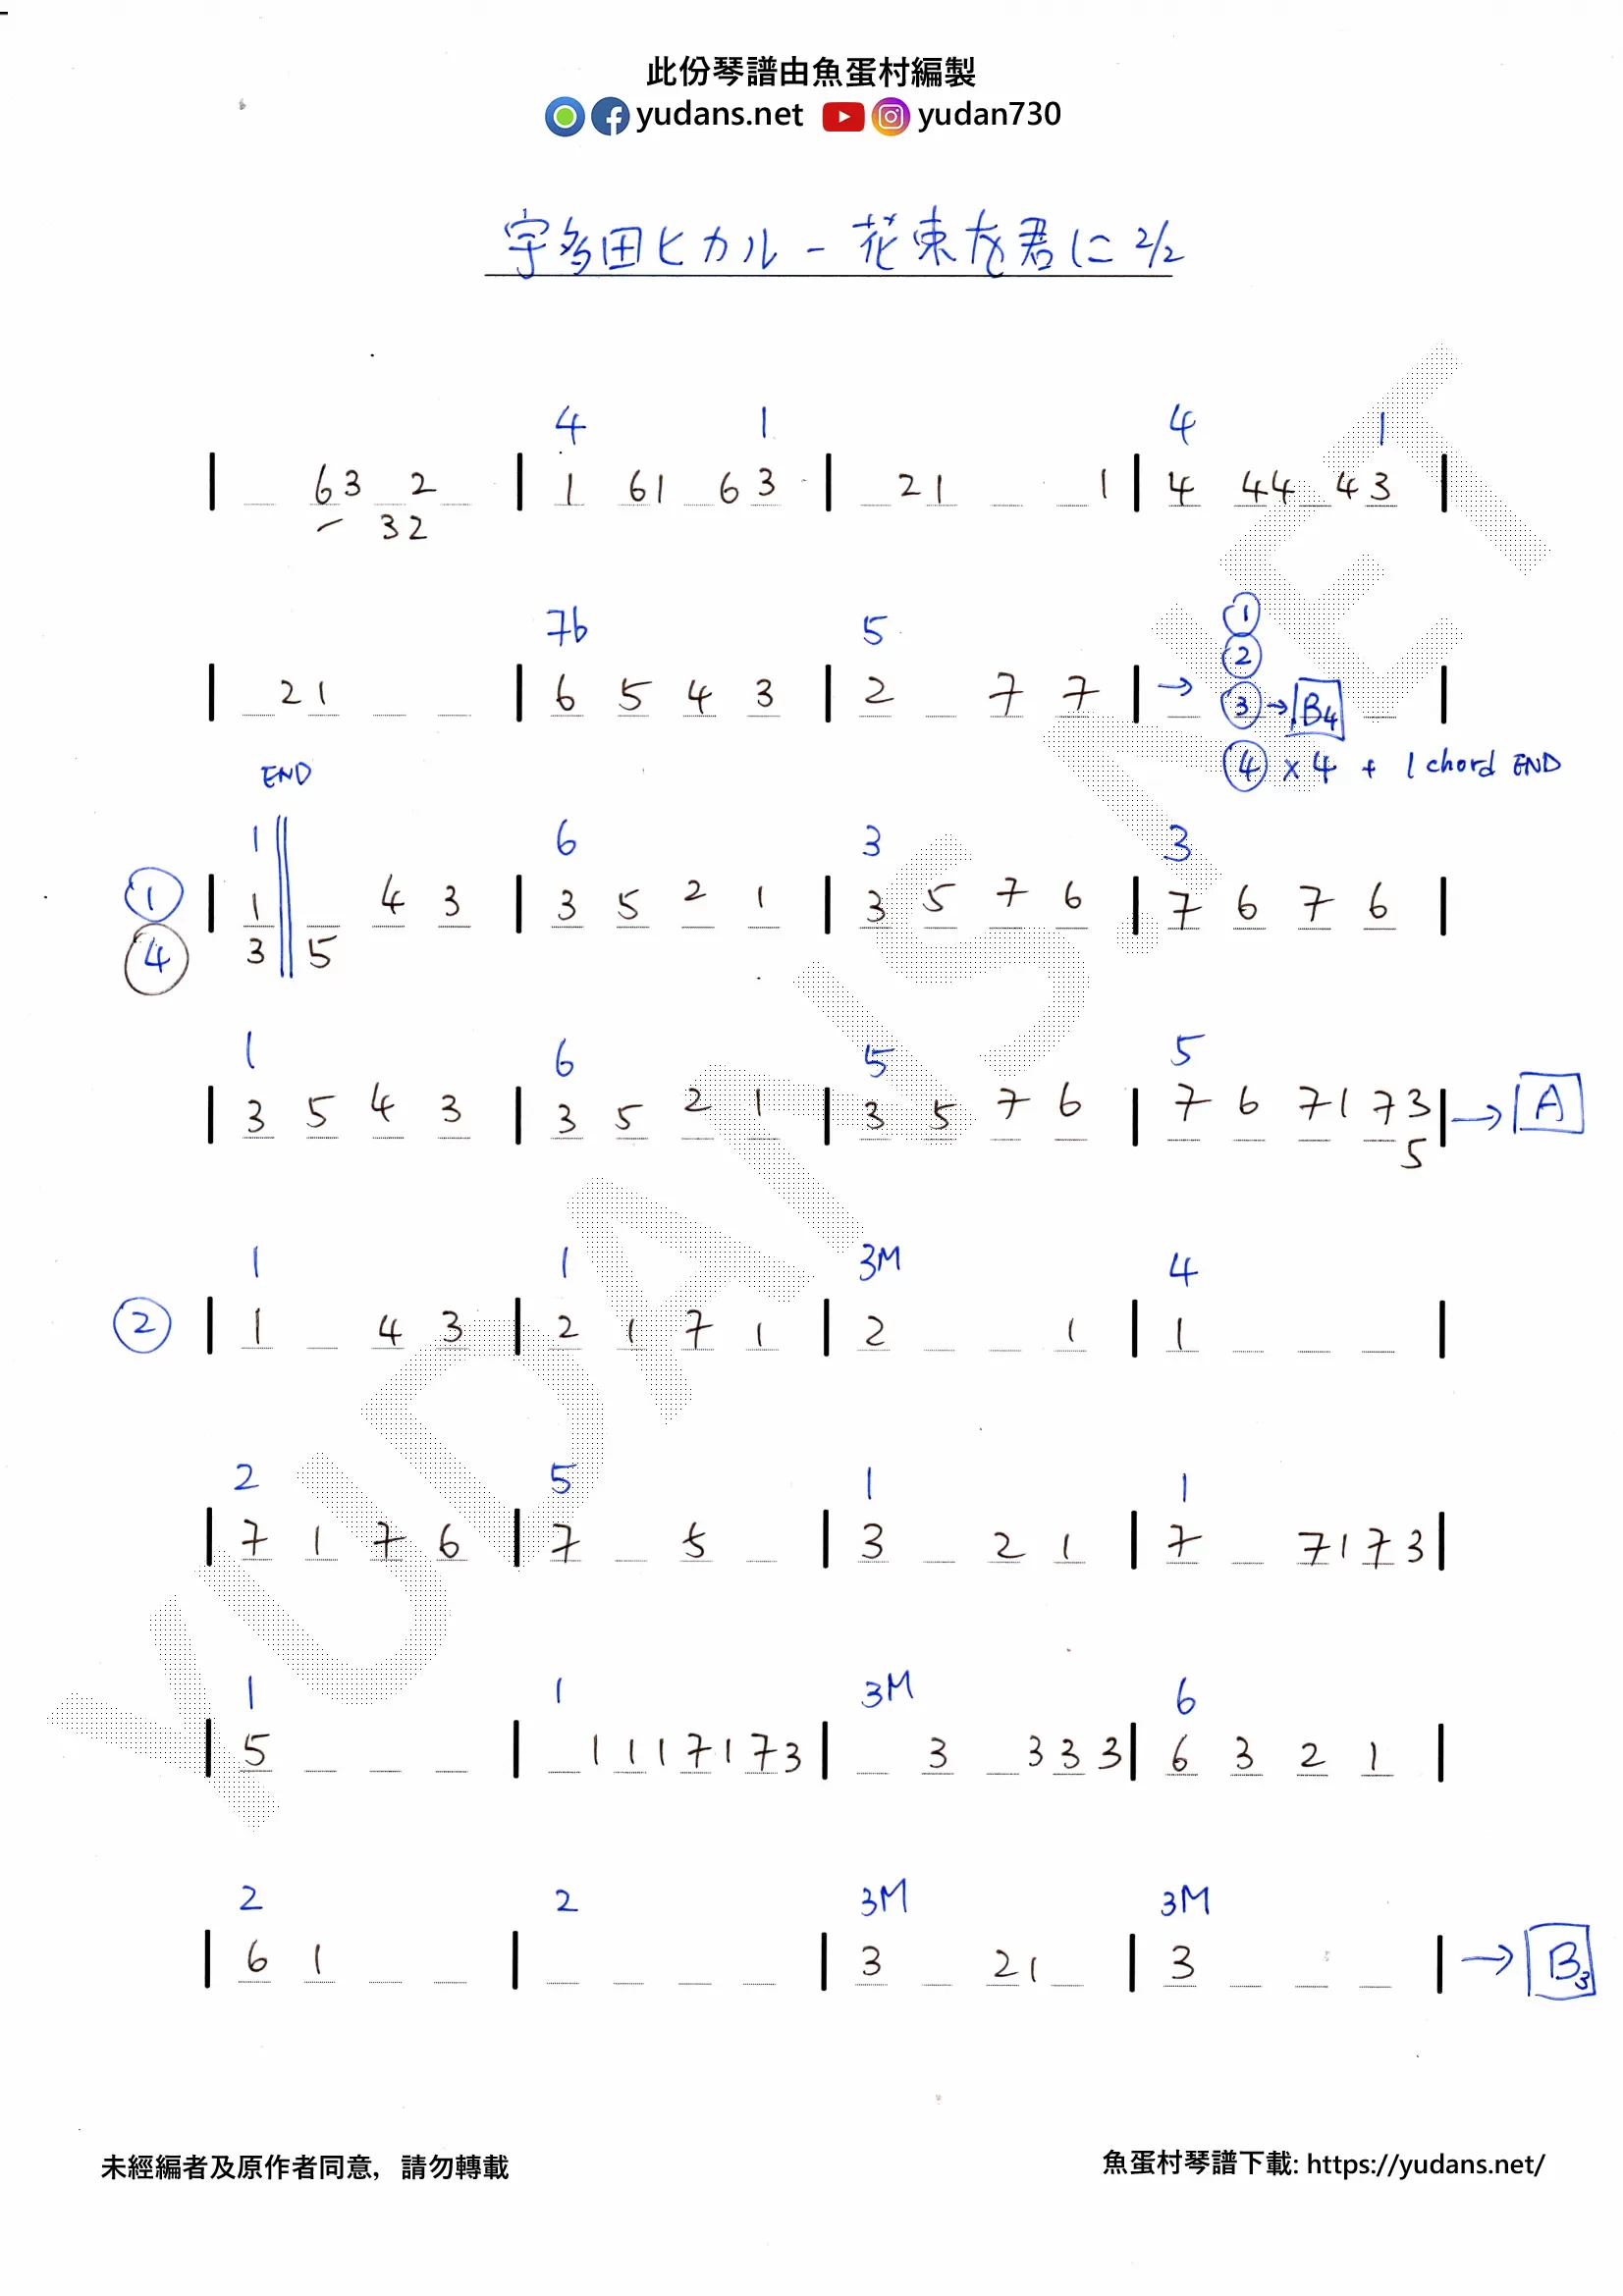 此份琴譜由魚蛋村編製
yudans.net yudan730
宇多田ヒカル - 花束を君に 2/2
4 1 4 1
| 63 2 | 1 61 63 | 21 1 | 4 44 43 |
32
7b 5
| 21 | 6 5 4 3 | 2 7 7 | → ① ② ③ → B4 |
④ x 4 + 1 chord END
END
1 6 3 3
① | 1 || 4 3 | 3 5 2 1 | 3 5 7 6 | 7 6 7 6 |
④ 3 5
1 6 5 5
| 3 5 4 3 | 3 5 2 1 | 3 5 7 6 | 7 6 71 73 | → A
5
1 1 3M 4
② | 1 4 3 | 2 1 7 1 | 2 1 | 1 |
2 5 1 1
| 7 1 7 6 | 7 5 | 3 2 1 | 7 71 73 |
1 1 3M 6
| 5 | 1 1 1 7 1 7 3 | 3 3 3 3 | 6 3 2 1 |
2 2 3M 3M
| 6 1 | | 3 21 | 3 | → B3
YUDANS.NET
未經編者及原作者同意，請勿轉載
魚蛋村琴譜下載: https://yudans.net/